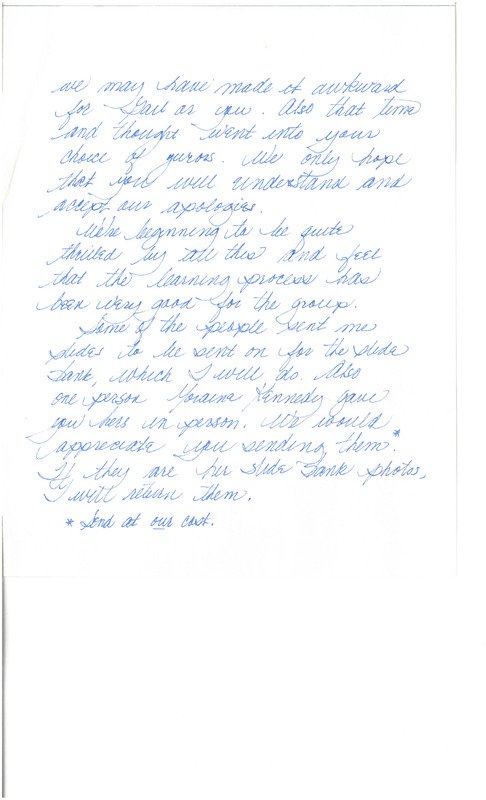 we may have made it awkward
for Gail or you. Also that time
and thought went into your
choice of jurors. We only hope
that you will understand and
accept our apologies.
We're beginning to be quite
thrilled by all this and feel
that the learning process has
been very good for the group.
Some of the people sent me
slides to be sent on for the slide
bank, which I will do. Also
one person Kennedy gave
you hers in person. We would
appreciate you sending them.*
If they are her slide bank photos,
I will return them.
* Send at our cost.